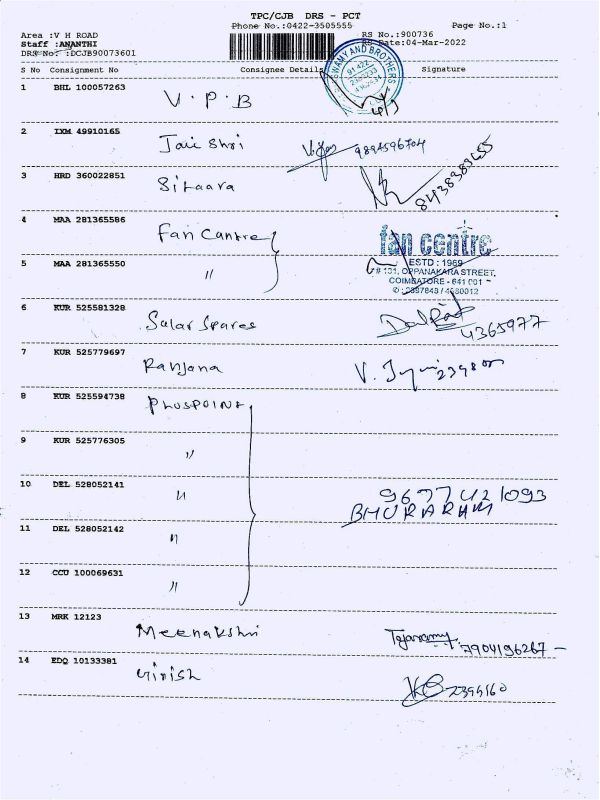 TPC/CJB DRS - PCT
Phone No.:0422-3505555
Page No.:1
Area :V H ROAD
RS No.:900736
Staff :ANANTHI
RS Date:04-Mar-2022
DRS No: :DCJB90073601
S No Consignment No Consignee Details Signature
SWAMY AND BROTHERS
1 BHL 100057263 V.P.B
2 IXM 49910165 Jai Shri 9894596704
3 HRD 360022851 Sitaara 8438383655
4 MAA 281365586 Fan Cantre
fan centre
ESTD : 1969
5 MAA 281365550 "
# 131, OPPANAKARA STREET,
COIMBATORE - 641 001
6 KUR 525581328 Salar Spares 4365977
7 KUR 525779697 Ranjana
8 KUR 525594738 PLUSPOINT
9 KUR 525776305 "
10 DEL 528052141 " 9677421093
BHURARAM
11 DEL 528052142 "
12 CCU 100069631 "
13 MRK 12123 Meenakshi 7904196267
14 EDQ 10133381 Girish